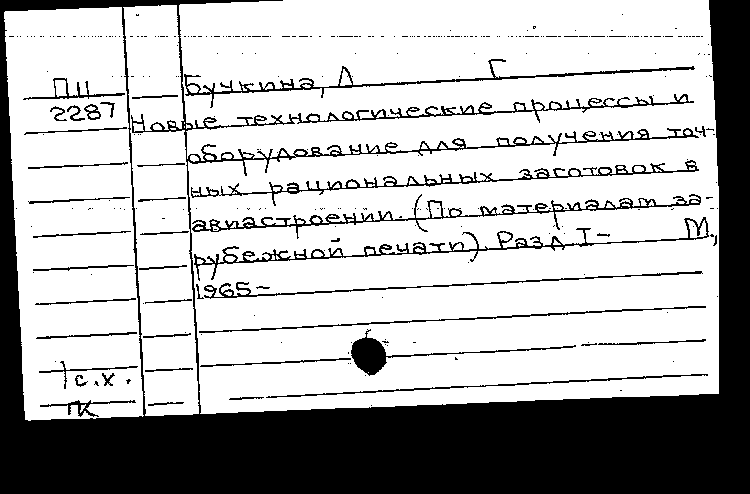 ПII Бучкина, Л Г
2287 Новые технологические процессы и
оборудование для получения точ-
ных рациональных заготовок в
авиастроении. (По материалам за-
рубежной печати). Разд I- М.,
1965-
1 с.х.
ПК